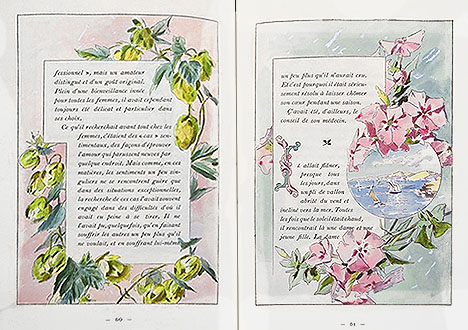 fessionnel », mais un amateur
distingué et d'un goût original.
Plein d'une bienveillance innée
pour toutes les femmes, il avait cependant
toujours été délicat et particulier dans
ses choix.
Ce qu'il recherchait avant tout chez les
femmes, c'étaient des « cas » sen-
timentaux, des façons d'éprouver
l'amour qui parussent neuves par
quelque endroit. Mais comme, en ces
matières, les sentiments un peu sin-
guliers ne se rencontrent guère que
dans des situations exceptionnelles,
la recherche de ces cas l'avait souvent
engagé dans des difficultés d'où il
avait eu peine à se tirer. Il ne
l'avait pu, quelquefois, qu'en faisant
souffrir les autres un peu plus qu'il
ne voulait, et en souffrant lui-même
— 60 —
un peu plus qu'il n'aurait cru.
Et c'est pourquoi il était sérieu-
sement résolu à laisser chômer
son cœur pendant une saison.
Ç'avait été, d'ailleurs, le
conseil de son médecin.
Il allait flâner,
presque tous
les jours, dans
un pli de vallon
abrité du vent et
incliné vers la mer. Toutes
les fois que le soleil était chaud,
il rencontrait là une dame et une
jeune fille. La dame
— 61 —